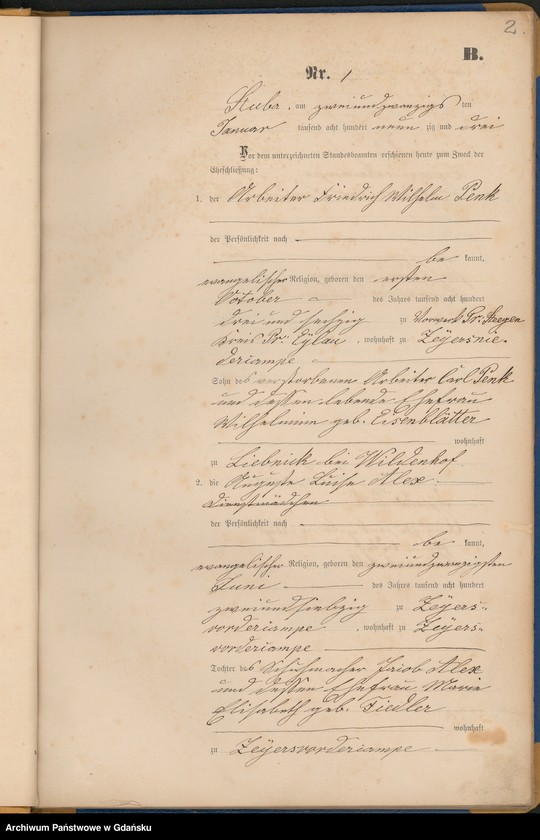 2
B.
Nr. 1
Stuba, am zweiundzwanzigs ten
Januar tausend acht hundert neun zig und drei
Vor dem unterzeichneten Standesbeamten erschienen heute zum Zweck der
Eheschließung:
1. der Arbeiter Friedrich Wilhelm Penk
der Persönlichkeit nach
be kannt,
evangelischer Religion, geboren den ersten
October des Jahres tausend acht hundert
drei und sechszig zu Vorwerk Gr. Steegen
Kreis Pr. Eylau, wohnhaft zu Zeyersnie-
dercampe
Sohn des verstorbenen Arbeiter Carl Penk
und dessen lebende Ehefrau
Wilhelmine geb. Eisenblätter
wohnhaft
zu Liebnick bei Wildenhof
2. die Auguste Luise Alex
Dienstmädchen
der Persönlichkeit nach
be kannt,
evangelischer Religion, geboren den zweiundzwanzigsten
Juni des Jahres tausend acht hundert
zweiundsiebzig zu Zeyers-
vordercampe, wohnhaft zu Zeyers-
vordercampe
Tochter des Schuhmacher Jacob Alex
und dessen Ehefrau Marie
Elisabeth geb. Fiedler
wohnhaft
zu Zeyersvordercampe
Archiwum Państwowe w Gdańsku